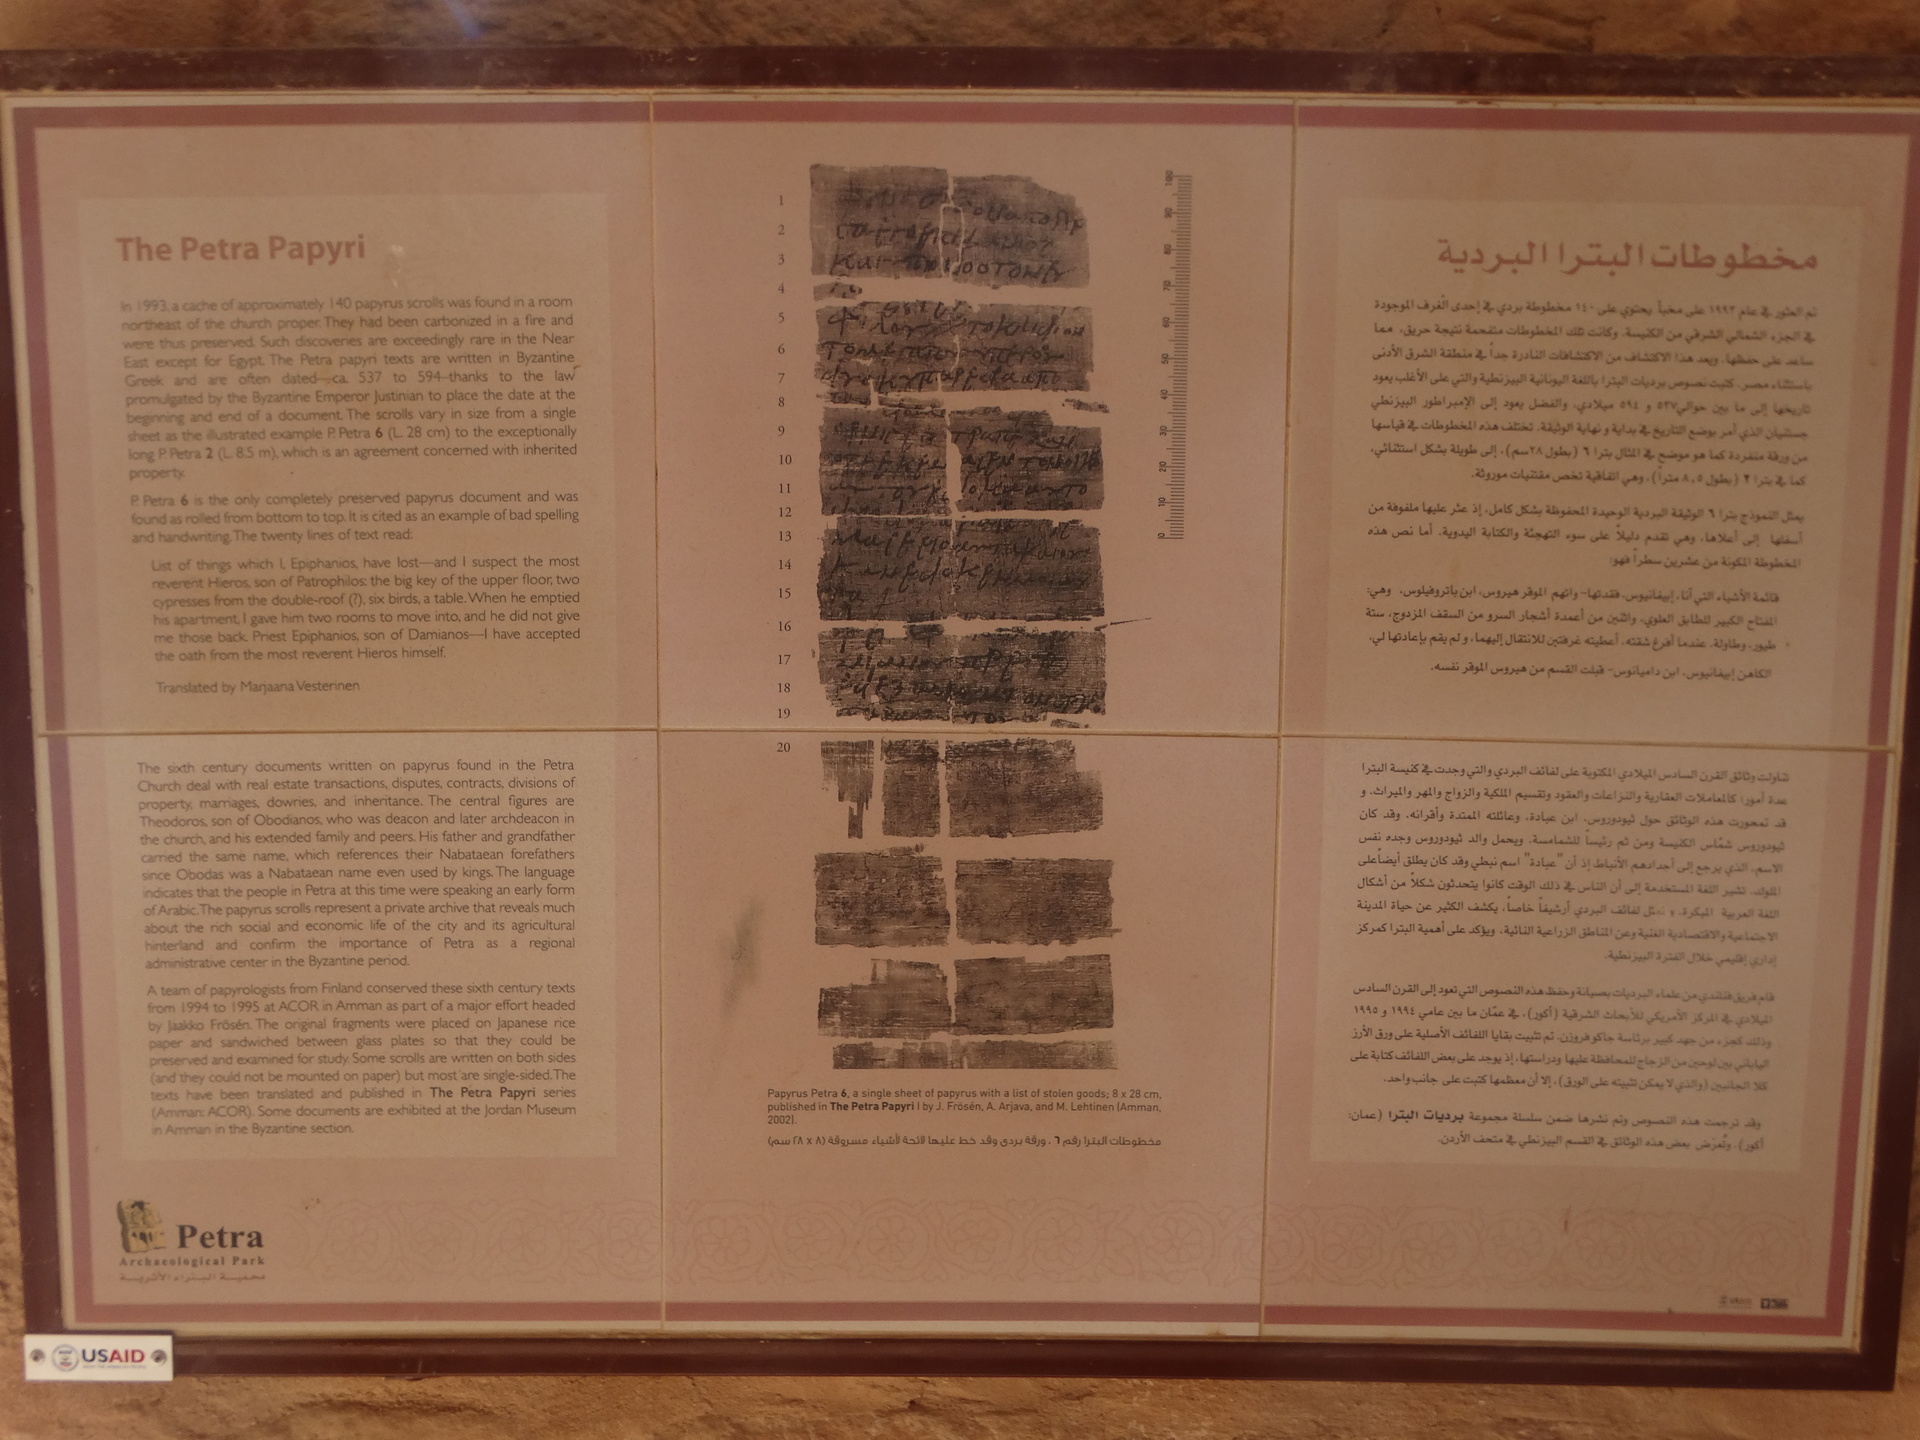 The Petra Papyri
In 1993, a cache of approximately 140 papyrus scrolls was found in a room
northeast of the church proper. They had been carbonized in a fire and
were thus preserved. Such discoveries are exceedingly rare in the Near
East except for Egypt. The Petra papyri texts are written in Byzantine
Greek and are often dated—ca. 537 to 594—thanks to the law
promulgated by the Byzantine Emperor Justinian to place the date at the
beginning and end of a document. The scrolls vary in size from a single
sheet as the illustrated example P. Petra 6 (L. 28 cm) to the exceptionally
long P. Petra 2 (L. 8.5 m), which is an agreement concerned with inherited
property.
P. Petra 6 is the only completely preserved papyrus document and was
found as rolled from bottom to top. It is cited as an example of bad spelling
and handwriting. The twenty lines of text read:
List of things which I, Epiphanios, have lost—and I suspect the most
reverent Hieros, son of Patrophilos: the big key of the upper floor, two
cypresses from the double-roof (?), six birds, a table. When he emptied
his apartment, I gave him two rooms to move into, and he did not give
me those back. Priest Epiphanios, son of Damianos—I have accepted
the oath from the most reverent Hieros himself.
Translated by Marjaana Vesterinen
The sixth century documents written on papyrus found in the Petra
Church deal with real estate transactions, disputes, contracts, divisions of
property, marriages, dowries, and inheritance. The central figures are
Theodoros, son of Obodianos, who was deacon and later archdeacon in
the church, and his extended family and peers. His father and grandfather
carried the same name, which references their Nabataean forefathers
since Obodas was a Nabataean name even used by kings. The language
indicates that the people in Petra at this time were speaking an early form
of Arabic. The papyrus scrolls represent a private archive that reveals much
about the rich social and economic life of the city and its agricultural
hinterland and confirm the importance of Petra as a regional
administrative center in the Byzantine period.
A team of papyrologists from Finland conserved these sixth century texts
from 1994 to 1995 at ACOR in Amman as part of a major effort headed
by Jaakko Frösén. The original fragments were placed on Japanese rice
paper and sandwiched between glass plates so that they could be
preserved and examined for study. Some scrolls are written on both sides
(and they could not be mounted on paper) but most are single-sided. The
texts have been translated and published in The Petra Papyri series
(Amman: ACOR). Some documents are exhibited at the Jordan Museum
in Amman in the Byzantine section.
Petra
Archaeological Park
محمية البتراء الأثرية
USAID
1
2
3
4
5
6
7
8
9
10
11
12
13
14
15
16
17
18
19
20
100
90
80
70
60
50
40
30
20
10
0
Papyrus Petra 6, a single sheet of papyrus with a list of stolen goods; 8 x 28 cm,
published in The Petra Papyri I by J. Frösén, A. Arjava, and M. Lehtinen (Amman,
2002).
مخطوطات البترا رقم ٦ ، ورقة بردي وقد خط عليها لائحة لأشياء مسروقة (٨ x ٢٨ سم)
مخطوطات البترا البردية
تم العثور في عام ١٩٩٣ على مخبأ يحتوي على ١٤٠ مخطوطة بردي في إحدى الغرف الموجودة
في الجزء الشمالي الشرقي من الكنيسة. وكانت تلك المخطوطات متفحمة نتيجة حريق، مما
ساعد على حفظها. ويعد هذا الاكتشاف من الاكتشافات النادرة جداً في منطقة الشرق الأدنى
باستثناء مصر. كتبت نصوص برديات البترا باللغة اليونانية البيزنطية والتي على الأغلب يعود
تاريخها إلى ما بين حوالي ٥٣٧ و ٥٩٤ ميلادي، والفضل يعود إلى الإمبراطور البيزنطي
جستنيان الذي أمر بوضع التاريخ في بداية و نهاية الوثيقة. تختلف هذه المخطوطات في قياسها
من ورقة منفردة كما هو موضح في المثال بترا ٦ (بطول ٢٨سم)، إلى طويلة بشكل استثنائي،
كما في بترا ٢ (بطول ٨،٥ متراً)، وهي اتفاقية تخص مقتنيات موروثة.
يمثل النموذج بترا ٦ الوثيقة البردية الوحيدة المحفوظة بشكل كامل، إذ عثر عليها ملفوفة من
أسفلها إلى أعلاها، وهي تقدم دليلاً على سوء التهجئة والكتابة اليدوية. أما نص هذه
المخطوطة المكونة من عشرين سطراً فهو:
قائمة الأشياء التي أنا، إبيفانيوس، فقدتها- واتهم الموقر هيروس، ابن باتروفيلوس، وهي:
المفتاح الكبير للطابق العلوي، واثنين من أعمدة أشجار السرو من السقف المزدوج، ستة
طيور، وطاولة. عندما أفرغ شقته، أعطيته غرفتين للانتقال إليهما، ولم يقم بإعادتها لي.
الكاهن إبيفانيوس، ابن داميانوس- قبلت القسم من هيروس الموقر نفسه.
تناولت وثائق القرن السادس الميلادي المكتوبة على لفائف البردي والتي وجدت في كنيسة البترا
عدة أمور؛ كالمعاملات العقارية والنزاعات والعقود وتقسيم الملكية والزواج والمهر والميراث، و
قد تمحورت هذه الوثائق حول ثيودوروس، ابن عبادة، وعائلته الممتدة وأقرانه. وقد كان
ثيودوروس شمّاس الكنيسة ومن ثم رئيساً للشمامسة. ويحمل والد ثيودوروس وجده نفس
الاسم، الذي يرجع إلى أجدادهم الأنباط إذ أن "عبادة" اسم نبطي وقد كان يطلق أيضاً على
الملوك. تشير اللغة المستخدمة إلى أن الناس في ذلك الوقت كانوا يتحدثون شكلاً من أشكال
اللغة العربية المبكرة. و تمثل لفائف البردي أرشيفاً خاصاً، يكشف الكثير عن حياة المدينة
الاجتماعية والاقتصادية الغنية وعن المناطق الزراعية النائية، ويؤكد على أهمية البترا كمركز
إداري إقليمي خلال الفترة البيزنطية.
قام فريق فنلندي من علماء البرديات بصيانة وحفظ هذه النصوص التي تعود إلى القرن السادس
الميلادي في المركز الأمريكي للأبحاث الشرقية (أكور)، في عمّان ما بين عامي ١٩٩٤ و ١٩٩٥
وذلك كجزء من جهد كبير برئاسة جاكو فروزن. تم تثبيت بقايا اللفائف الأصلية على ورق الأرز
الياباني بين لوحين من الزجاج للمحافظة عليها ودراستها، إذ يوجد على بعض اللفائف كتابة على
كلا الجانبين (والذي لا يمكن تثبيته على الورق)، إلا أن معظمها كتبت على جانب واحد.
وقد ترجمت هذه النصوص وتم نشرها ضمن سلسلة مجموعة برديات البترا (عمان:
أكور). وتُعرَض بعض هذه الوثائق في القسم البيزنطي في متحف الأردن.